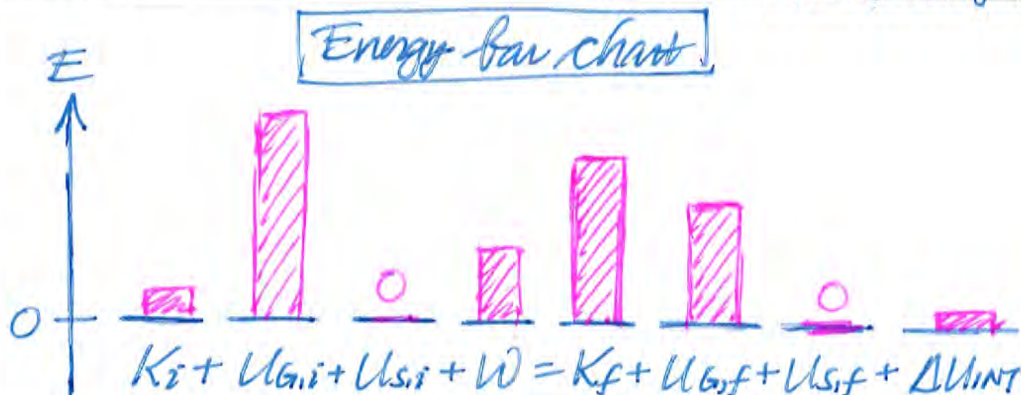 Energy bar chart
E
O O
O
Ki + UG,i + US,i + W = Kf + UG,f + US,f + ΔUINT